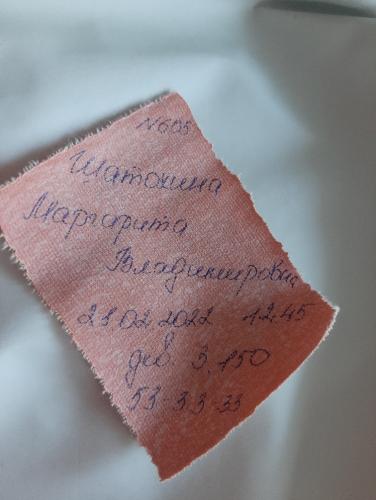 N605
Шатохина
Маргарита
Владимировна
23.02.2022 12.45
дев. 3.150
53-33-33